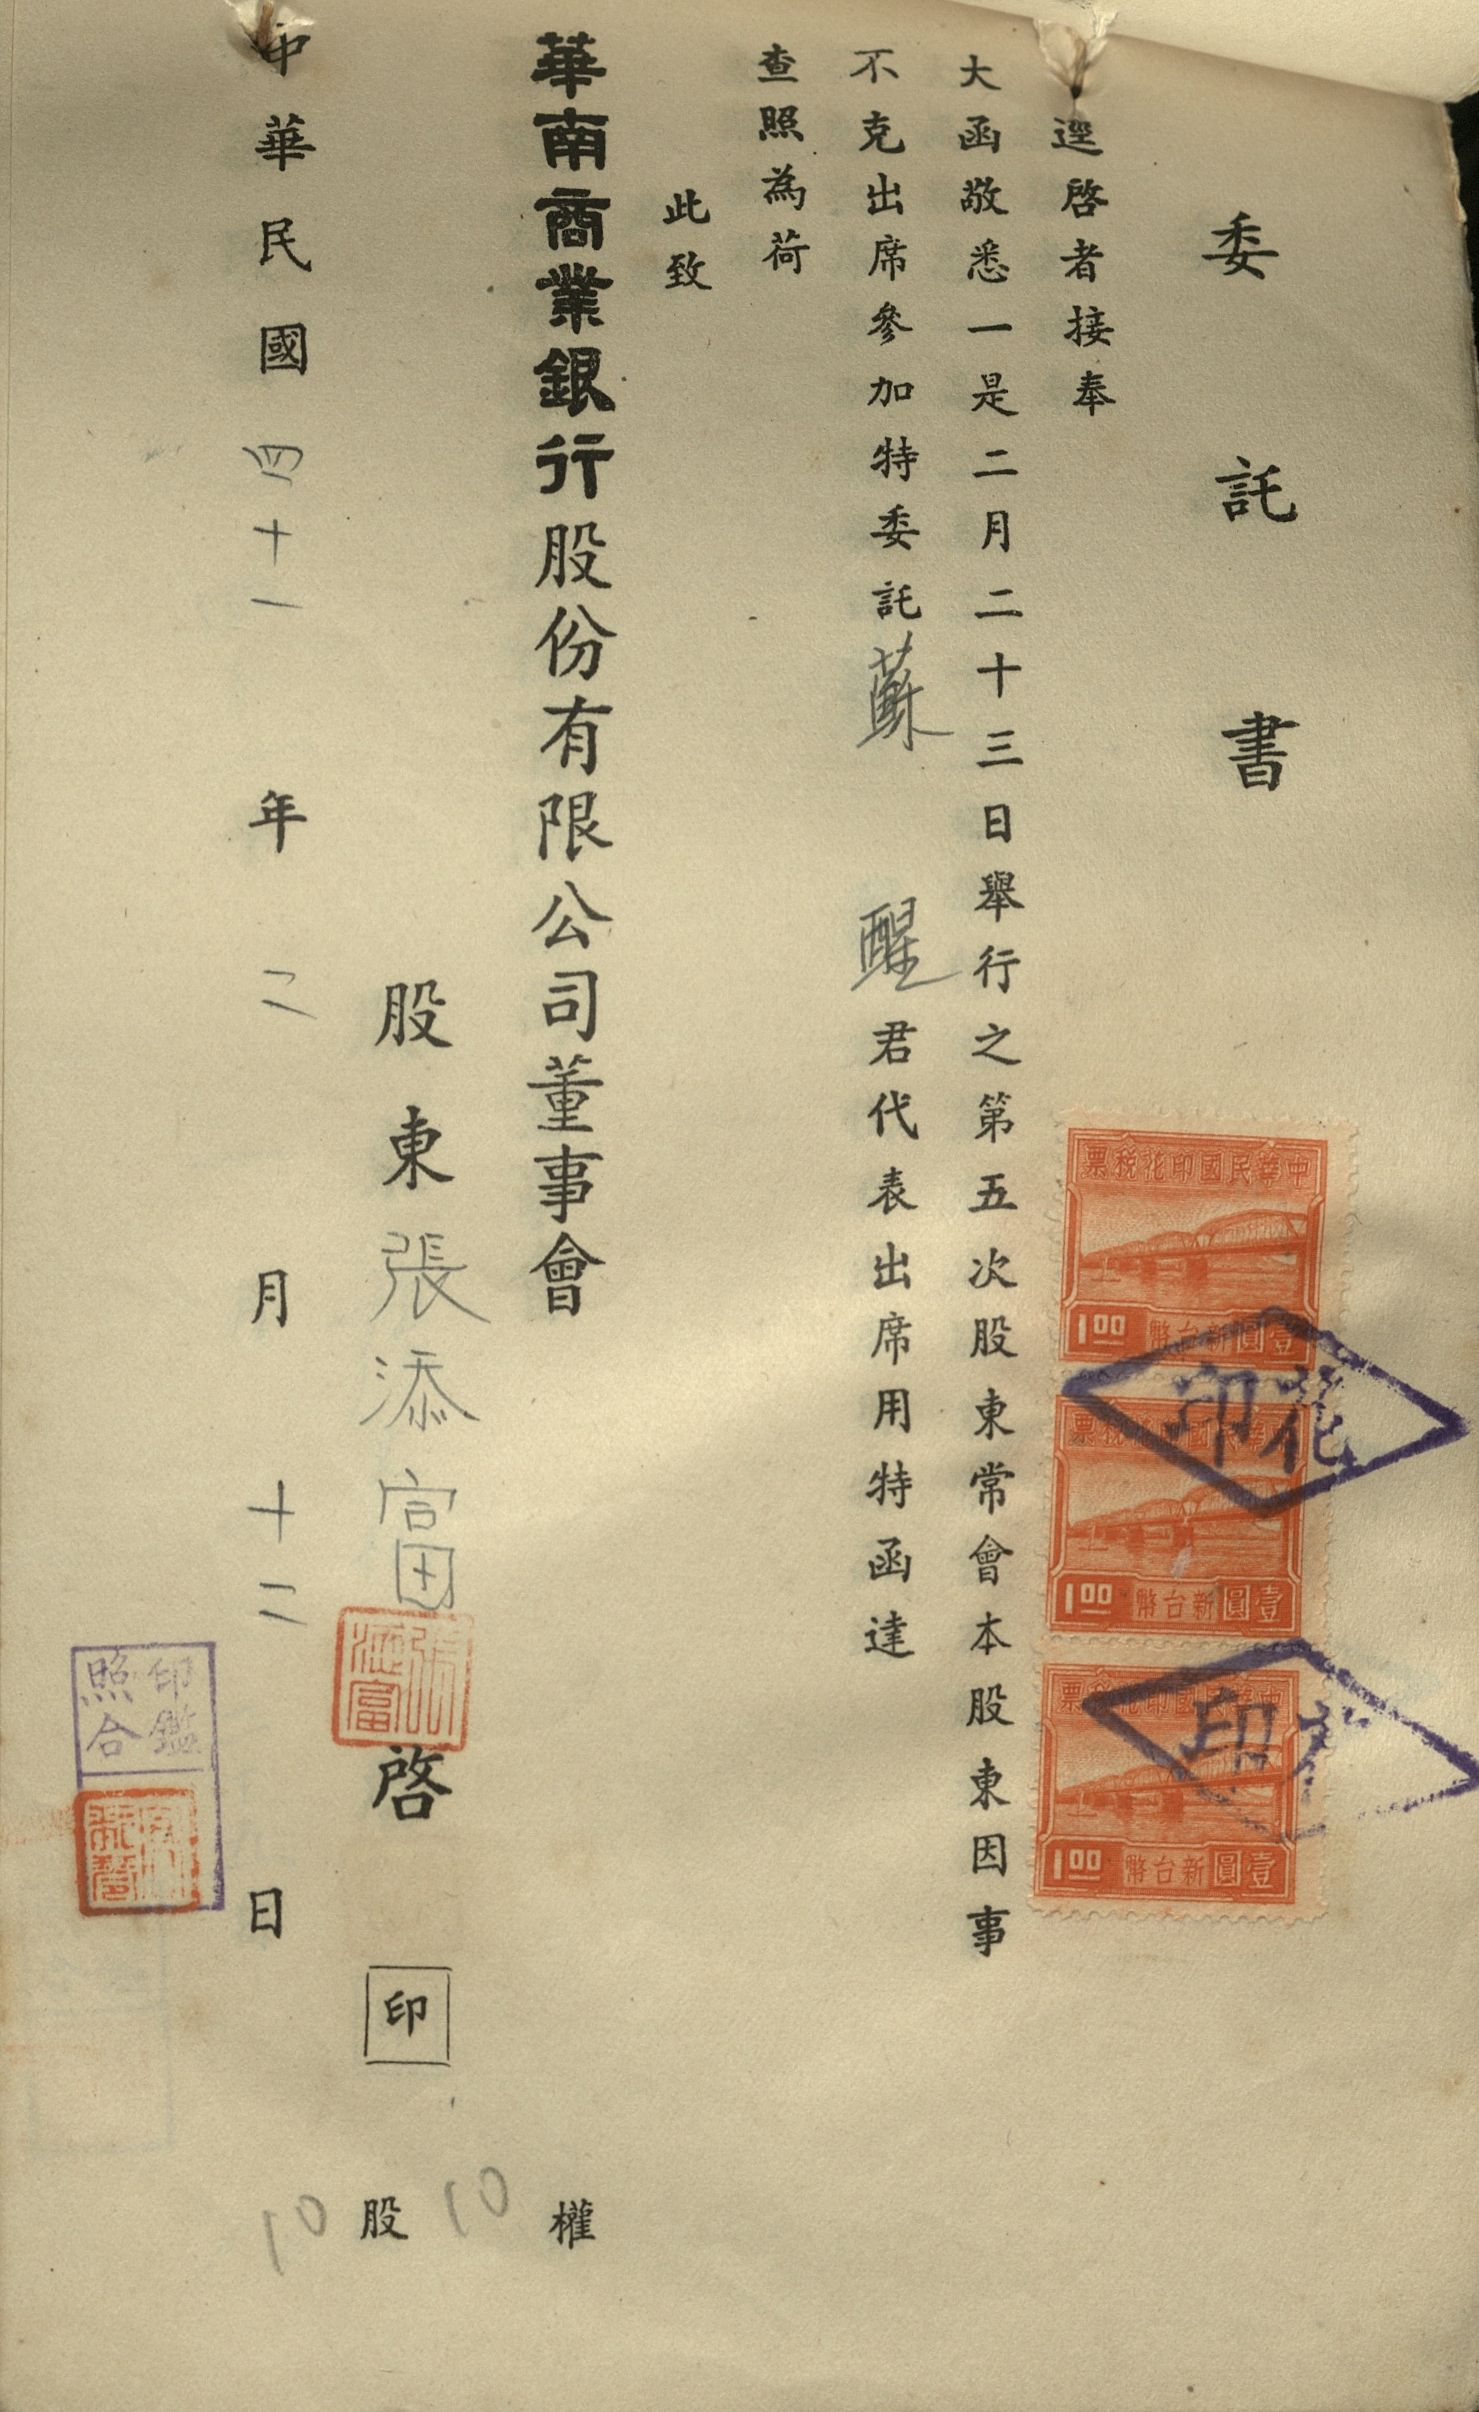 委託書
逕啓者接奉
大函敬悉一是二月二十三日舉行之第五次股東常會本股東因事
不克出席參加特委託蘇醒君代表出席用特函達
查照為荷
此致
華南商業銀行股份有限公司董事會
股東張添富啓印
中華民國四十一年二月十二日
10股10權
中華民國印花稅票
壹圓新台幣
1.00
中華民國印花稅票
壹圓新台幣
1.00
中華民國印花稅票
壹圓新台幣
1.00
花印
花印
張添富
印鑑
照合